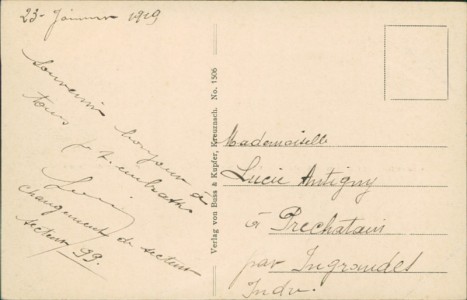 23 - Janvier 1919
Souvenir bonjour à
tous je t'embrasse
Lucien
changement de secteur
secteur 99.
Verlag von Buss & Kupfer, Kreuznach. No. 1506
Mademoiselle
Lucie Antigny
à Prechatain
par Ingrandes
Indre.